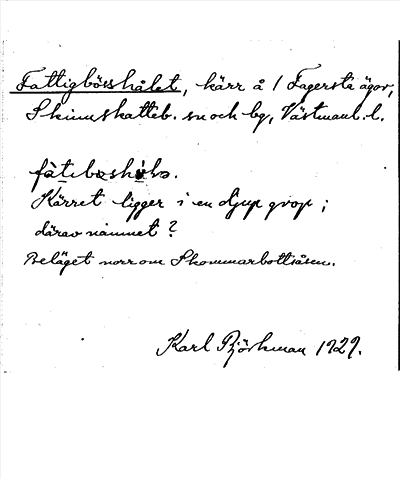 Fattigbösshålet, kärr å / Fagersta ägor,
Skinnskatteb. sn och bg, Västmanl. l.
fàtibəshóḷə.
Kärret ligger i en djup grop ;
därav namnet ?
Beläget norr om Skommarbottsåsen.
Karl Björkman 1929.